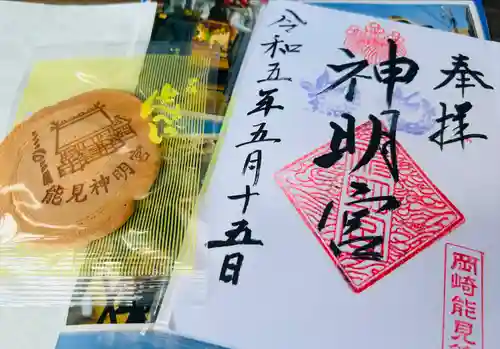 奉拝
神明宮
令和五年五月十五日
岡崎能見
能見神明宮